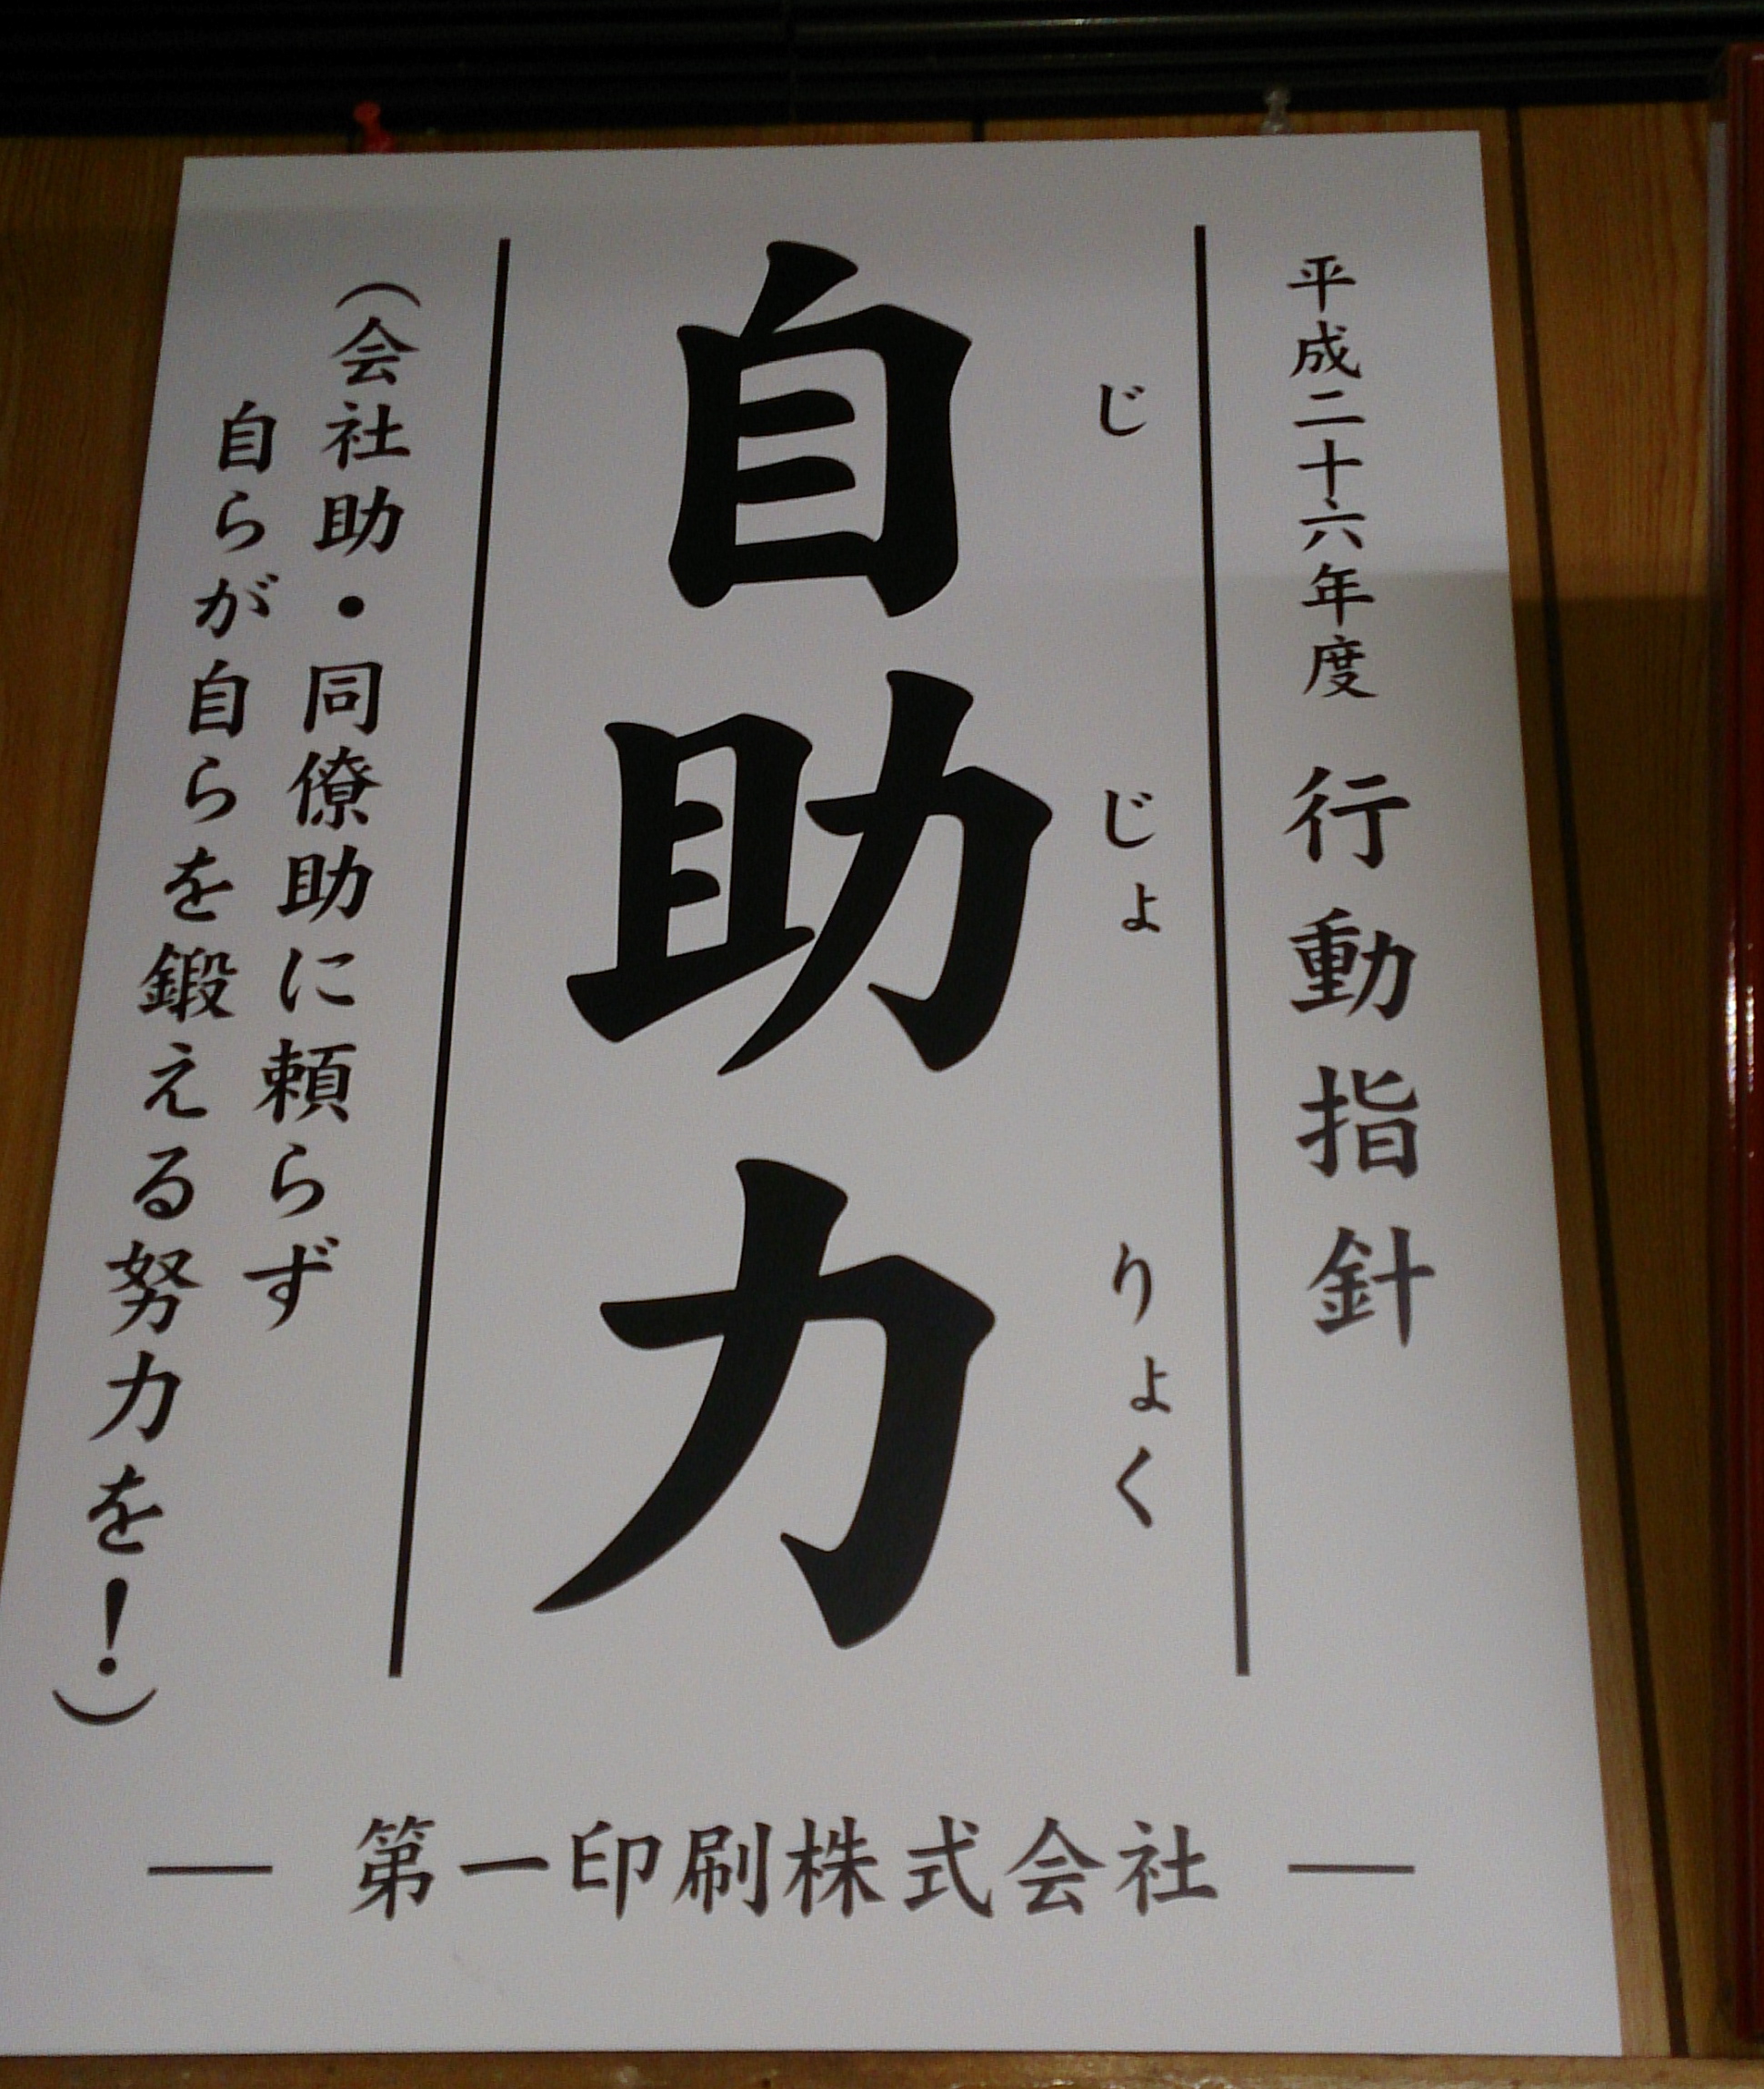 平成二十六年度 行動指針
じじょりょく
自助力
(会社助・同僚助に頼らず
自らが自らを鍛える努力を!)
― 第一印刷株式会社 ―